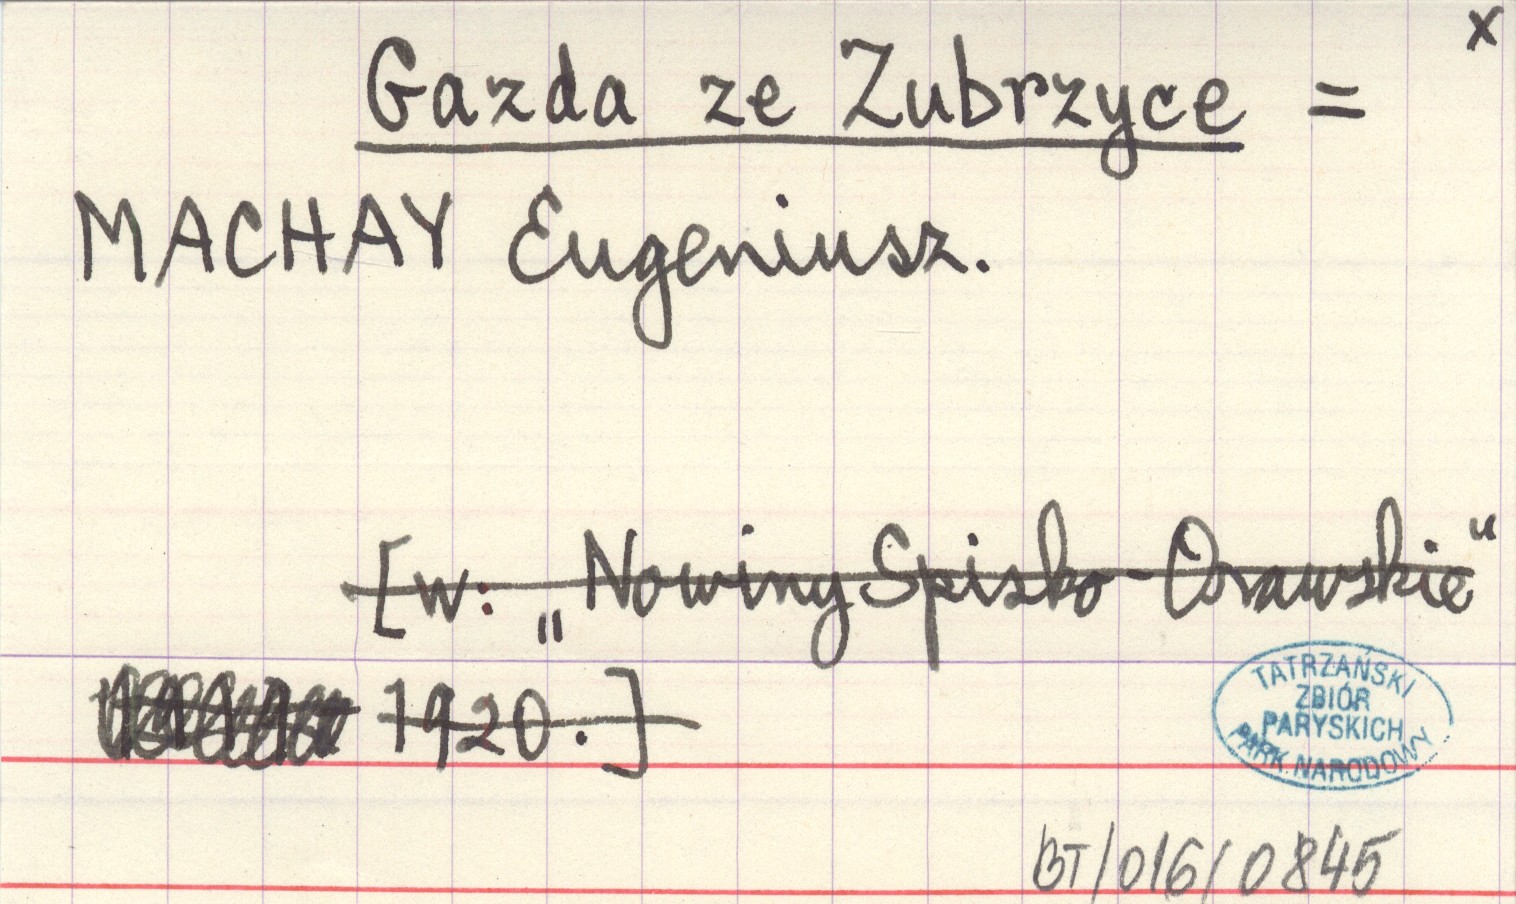 x
Gazda ze Zubrzyce =
MACHAY Eugeniusz.
[w: „Nowiny Spisko-Orawskie"
1920.]
TATRZAŃSKI
ZBIÓR
PARYSKICH
PARK NARODOWY
BT/016/0845